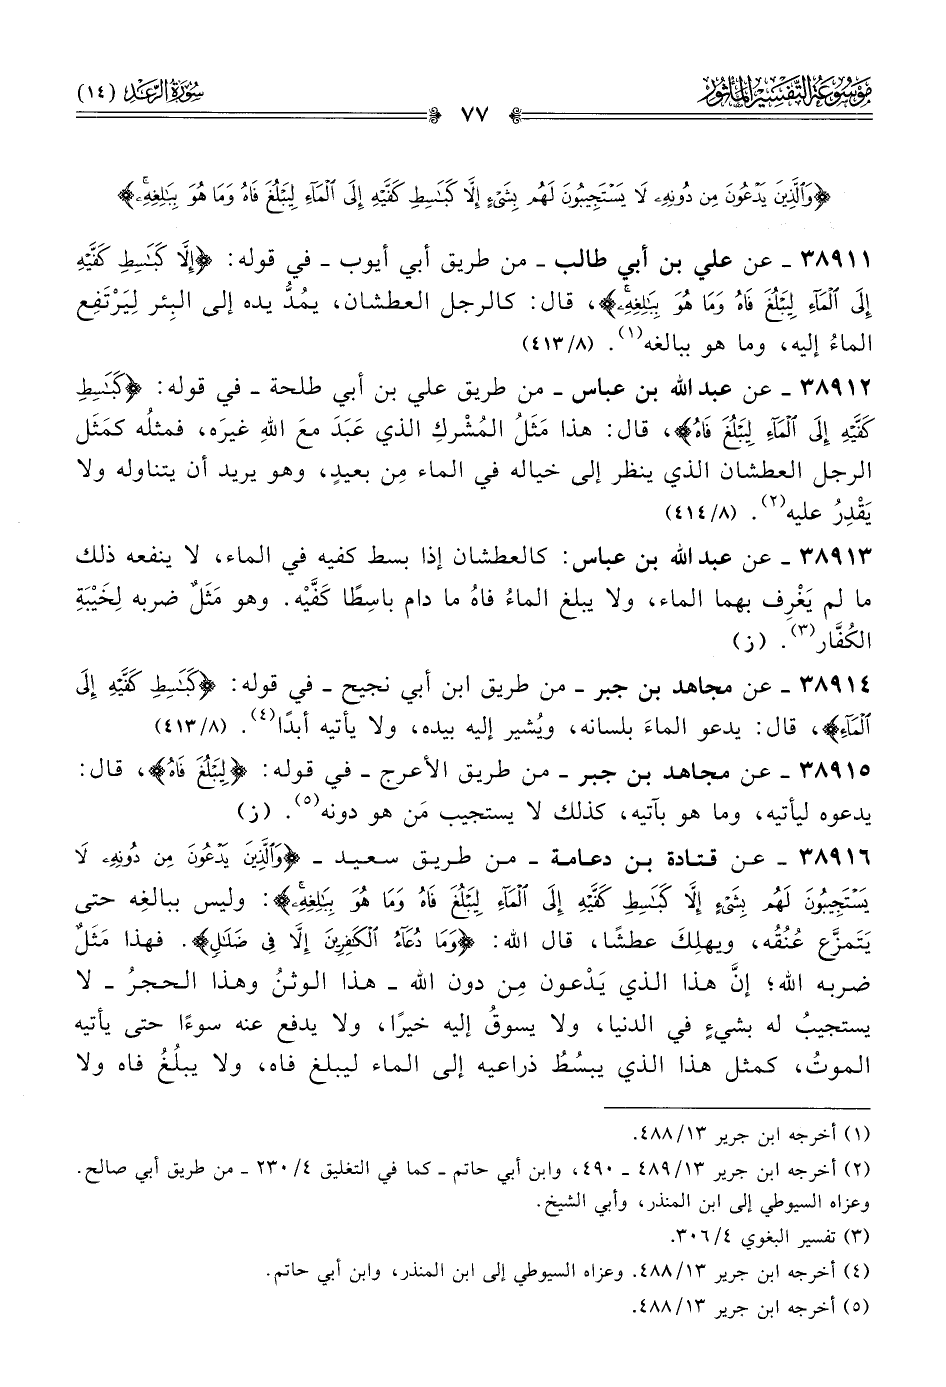 مَوْسُوعَة التَّفْسِير المَأثُور
سُورَةُ الرَّعْد (١٤)
٧٧
﴿وَالَّذِينَ يَدْعُونَ مِن دُونِهِ لَا يَسْتَجِيبُونَ لَهُم بِشَيْءٍ إِلَّا كَبَاسِطِ كَفَّيْهِ إِلَى الْمَاءِ لِيَبْلُغَ فَاهُ وَمَا هُوَ بِبَالِغِهِ﴾
٣٨٩١١ ـ عن علي بن أبي طالب ـ من طريق أبي أيوب ـ في قوله: ﴿إِلَّا كَبَاسِطِ كَفَّيْهِ
إِلَى الْمَاءِ لِيَبْلُغَ فَاهُ وَمَا هُوَ بِبَالِغِهِ﴾، قال: كالرجل العطشان، يمُدُّ يده إلى البئر لِيَرْتَفِع
الماءُ إليه، وما هو ببالغه(١). (٤١٣/٨)
٣٨٩١٢ ـ عن عبد الله بن عباس ـ من طريق علي بن أبي طلحة ـ في قوله: ﴿كَبَاسِطِ
كَفَّيْهِ إِلَى الْمَاءِ لِيَبْلُغَ فَاهُ﴾، قال: هذا مَثَلُ المُشْركِ الذي عَبَدَ معَ اللهِ غيرَه، فمثلُه كمَثَل
الرجل العطشان الذي ينظر إلى خياله في الماء مِن بعيدٍ، وهو يريد أن يتناوله ولا
يَقْدِرُ عليه(٢). (٤١٤/٨)
٣٨٩١٣ ـ عن عبد الله بن عباس: كالعطشان إذا بسط كفيه في الماء، لا ينفعه ذلك
ما لم يَغْرِف بهما الماء، ولا يبلغ الماءُ فاهُ ما دام باسِطًا كَفَّيْه. وهو مَثَلٌ ضربه لِخَيْبَةِ
الكُفَّار(٣). (ز)
٣٨٩١٤ ـ عن مجاهد بن جبر ـ من طريق ابن أبي نجيح ـ في قوله: ﴿كَبَاسِطِ كَفَّيْهِ إِلَى
الْمَاءِ﴾، قال: يدعو الماءَ بلسانه، ويُشير إليه بيده، ولا يأتيه أبدًا(٤). (٤١٣/٨)
٣٨٩١٥ ـ عن مجاهد بن جبر ـ من طريق الأعرج ـ في قوله: ﴿لِيَبْلُغَ فَاهُ﴾، قال:
يدعوه ليأتيه، وما هو بآتيه، كذلك لا يستجيب مَن هو دونه(٥). (ز)
٣٨٩١٦ ـ عن قتادة بن دعامة ـ من طريق سعيد ـ ﴿وَالَّذِينَ يَدْعُونَ مِن دُونِهِ لَا
يَسْتَجِيبُونَ لَهُم بِشَيْءٍ إِلَّا كَبَاسِطِ كَفَّيْهِ إِلَى الْمَاءِ لِيَبْلُغَ فَاهُ وَمَا هُوَ بِبَالِغِهِ﴾: وليس ببالغِه حتى
يَتَمزَّع عُنُقُه، ويهلِكَ عطشًا، قال الله: ﴿وَمَا دُعَاءُ الْكَافِرِينَ إِلَّا فِي ضَلَالٍ﴾. فهذا مَثَلٌ
ضربه الله؛ إنَّ هذا الذي يَدْعون مِن دون الله ـ هذا الوثنُ وهذا الحجرُ ـ لا
يستجيبُ له بشيءٍ في الدنيا، ولا يسوقُ إليه خيرًا، ولا يدفع عنه سوءًا حتى يأتيه
الموتُ، كمثل هذا الذي يبسُطُ ذراعيه إلى الماء ليبلغ فاه، ولا يبلُغُ فاه ولا
(١) أخرجه ابن جرير ١٣/ ٤٨٨.
(٢) أخرجه ابن جرير ١٣/ ٤٨٩ ـ ٤٩٠، وابن أبي حاتم ـ كما في التغليق ٤/ ٢٣٠ ـ من طريق أبي صالح.
وعزاه السيوطي إلى ابن المنذر، وأبي الشيخ.
(٣) تفسير البغوي ٤/ ٣٠٦.
(٤) أخرجه ابن جرير ١٣/ ٤٨٨. وعزاه السيوطي إلى ابن المنذر، وابن أبي حاتم.
(٥) أخرجه ابن جرير ١٣/ ٤٨٨.